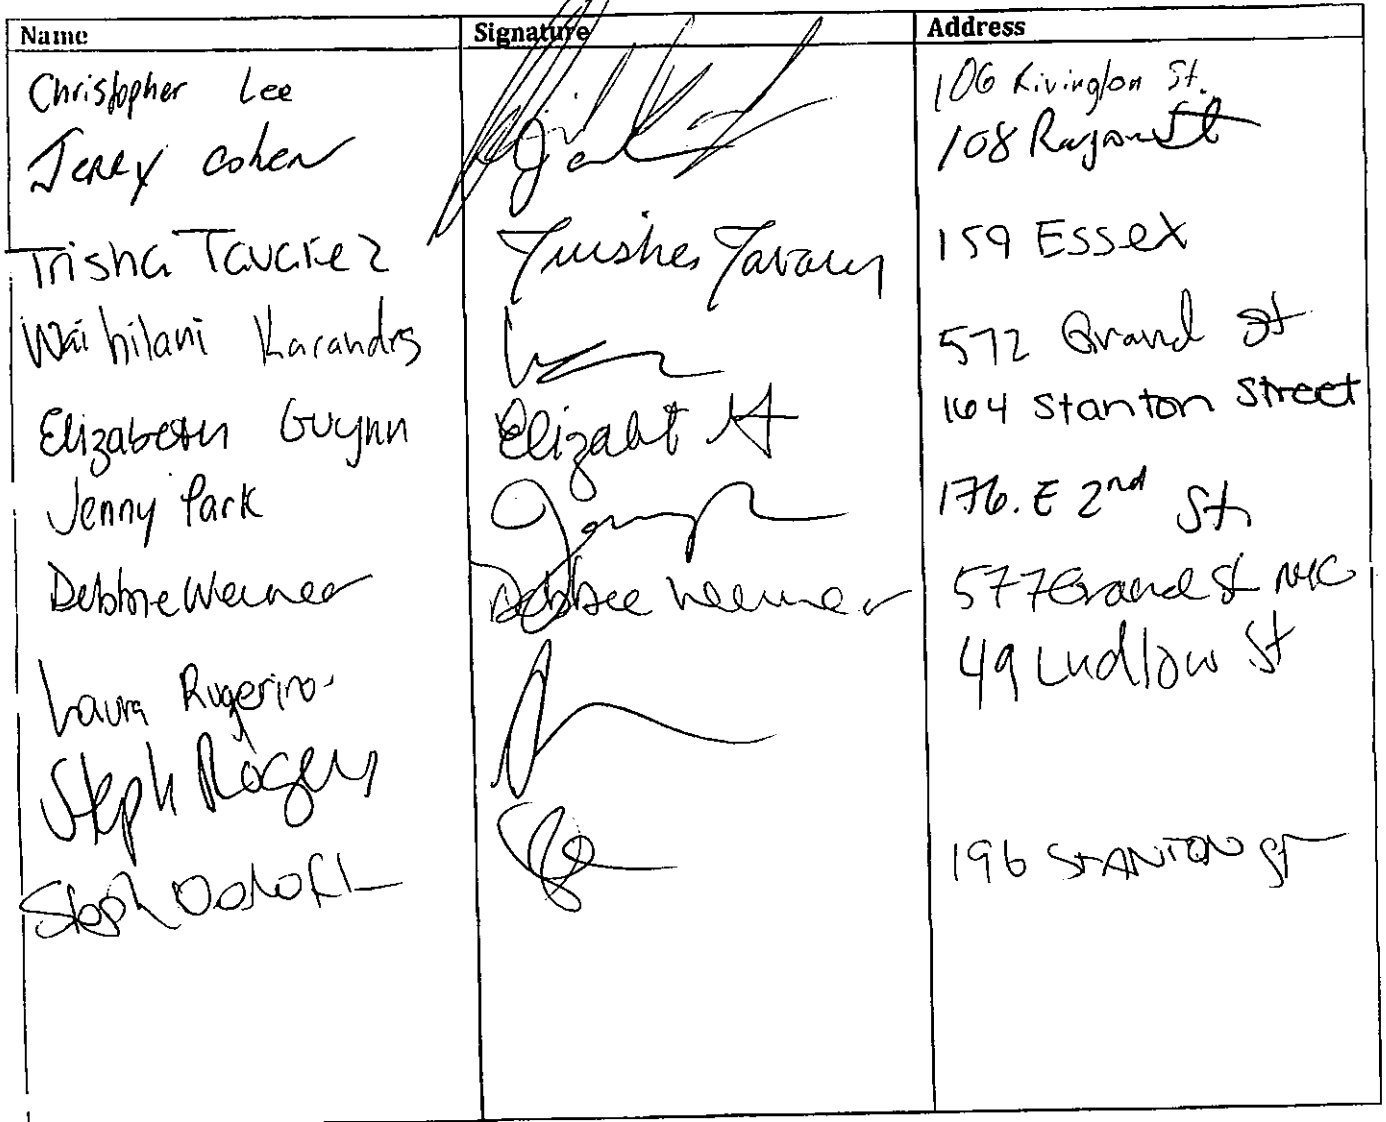 Name Signature Address
Christopher Lee 106 Rivington St.
Jerry Cohen 108 St
Trisha Tavarez Trisha Tavarez 159 Essex
Waihilani 572 Grand St
Elizabeth Gwynn Elizabt 164 Stanton Street
Jenny Park 176. E 2nd St.
Debbie Werner Debbie Werner 577 Grand St NYC
Laura 49 Ludlow St
Steph Rogers
Steph 196 STANTON St